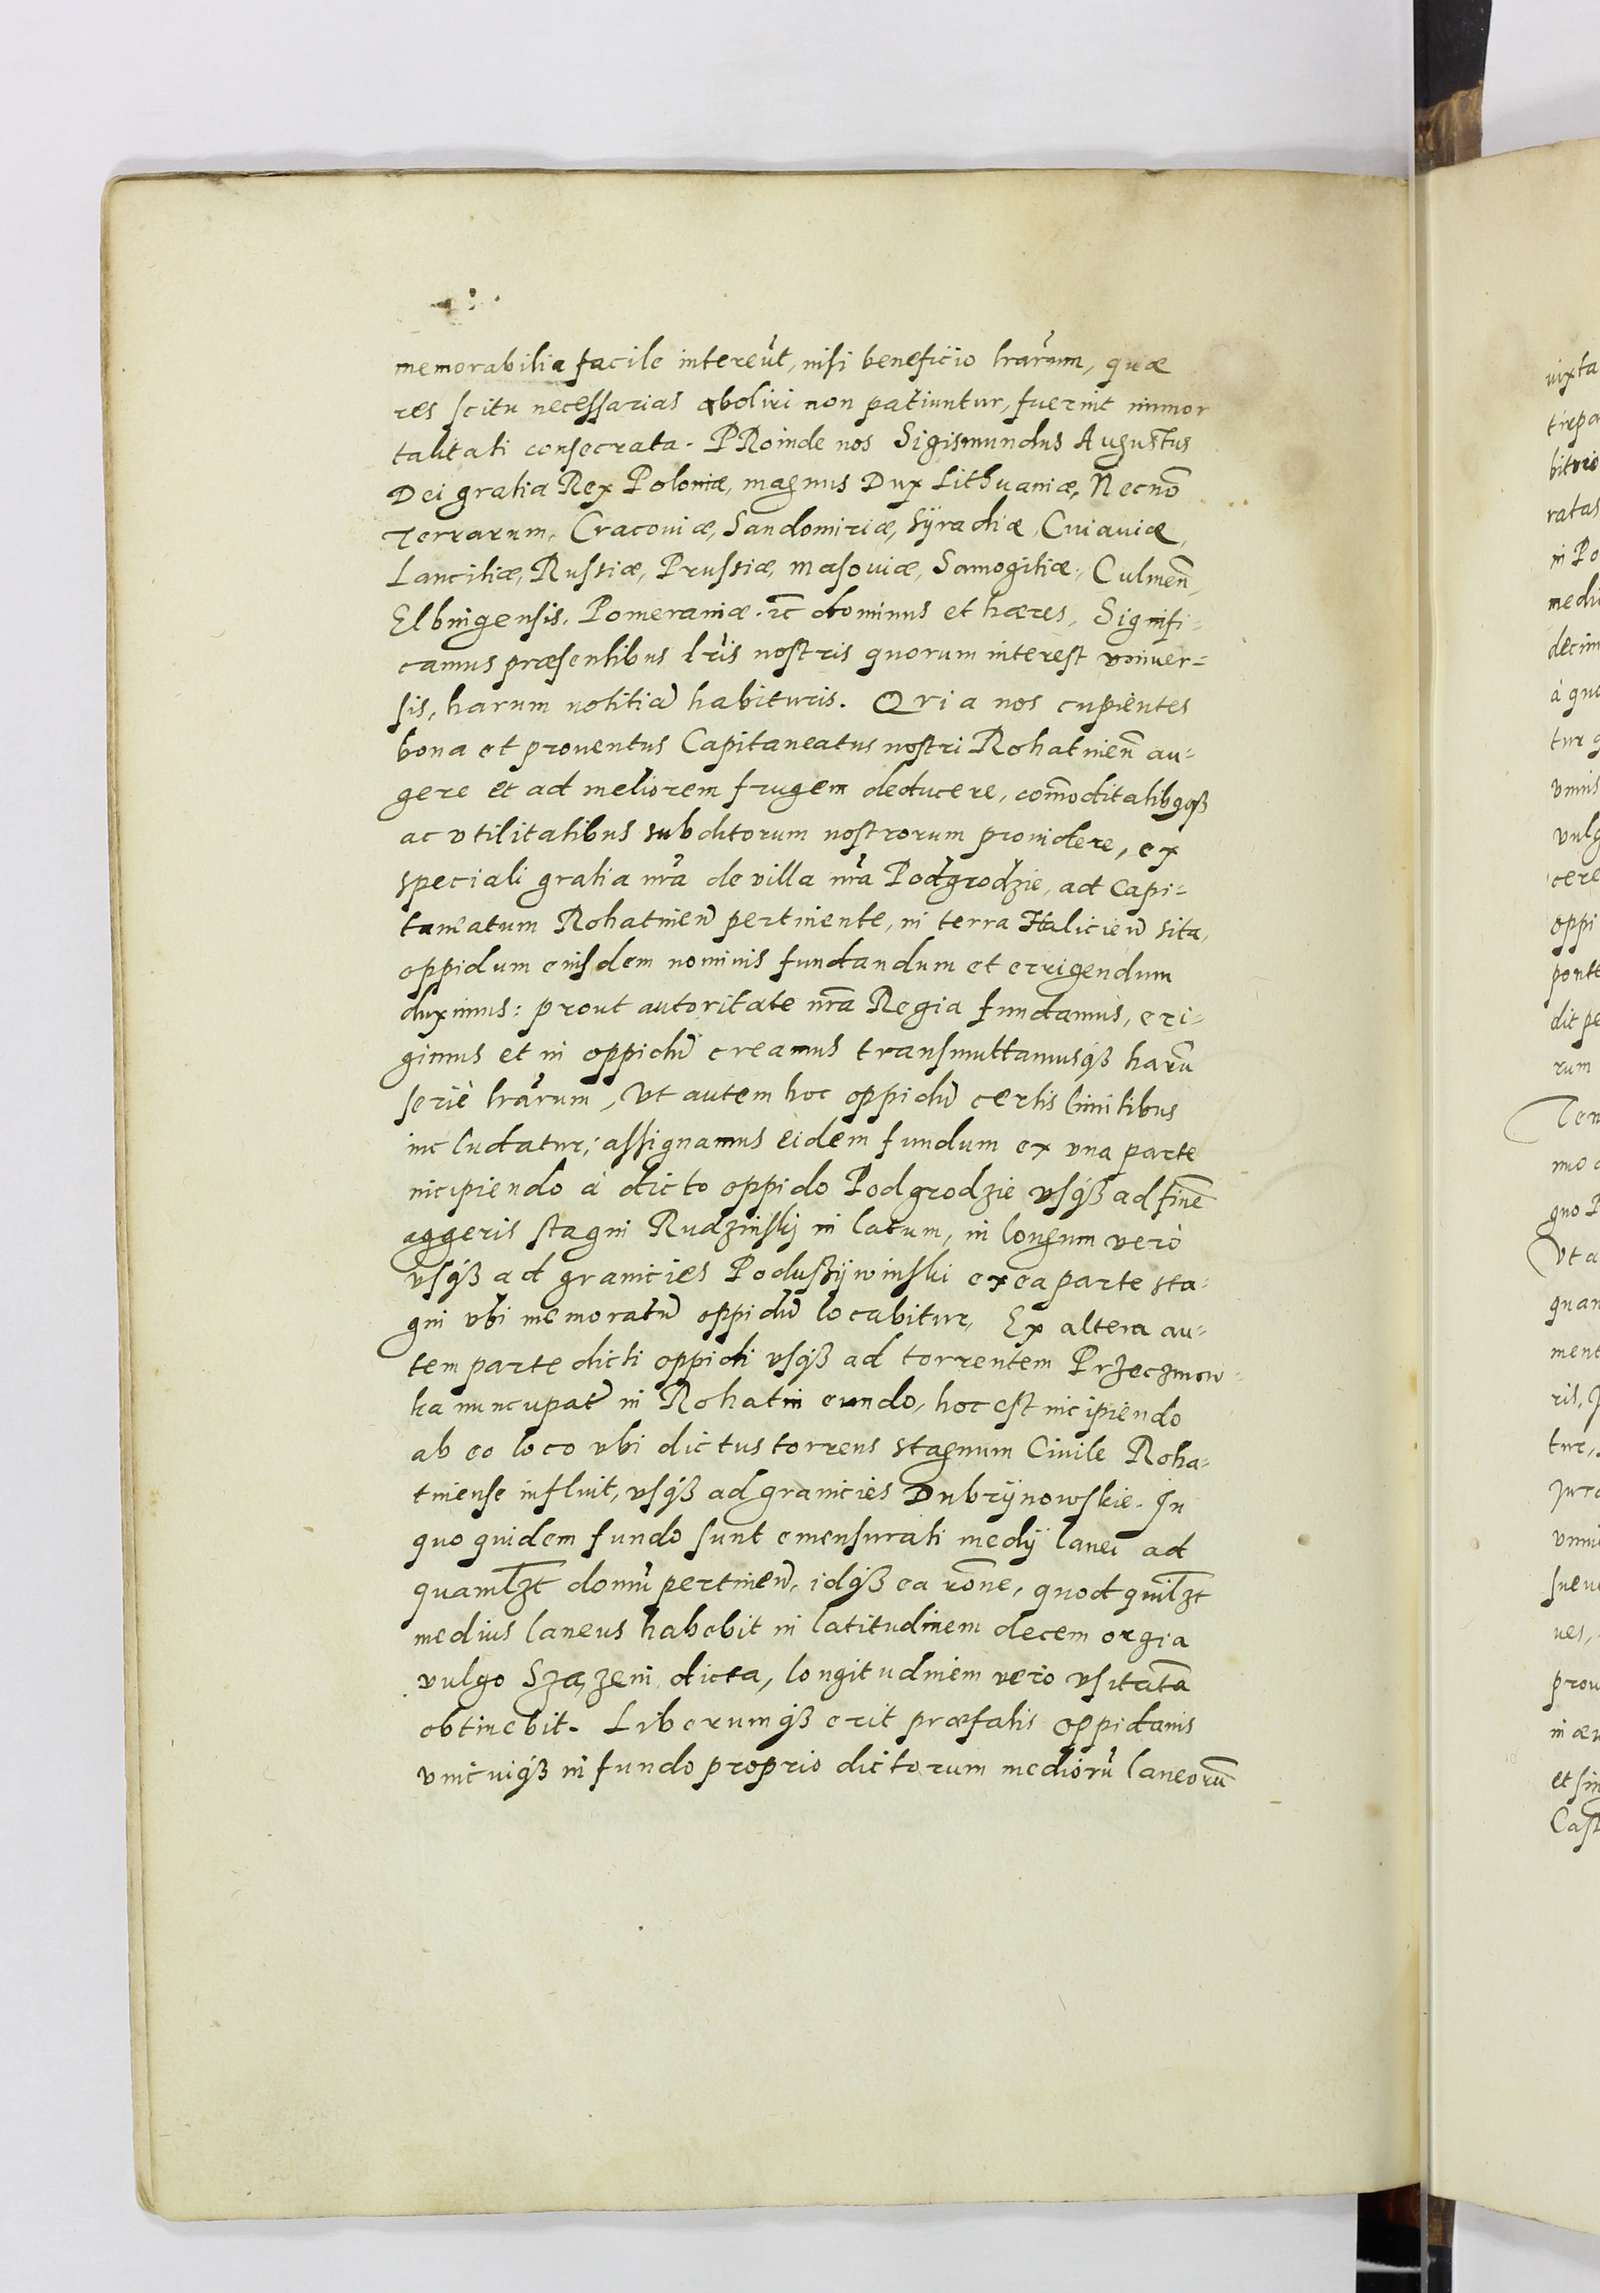 memorabilia facile intereũt, nisi beneficio lrãrum, quæ
res scitu necessarias aboliri non patiuntur, fuerint immor
talitati consecrata. PRoinde nos Sigismundus Augustus
Dei gratia Rex Poloniæ, magnus Dux Lithuaniæ, Necnõ
Terrarum, Cracouiæ, Sandomiriæ, Syradiæ, Cuiauiæ,
Lanciliæ, Russiæ, Prussiæ, Masouiæ, Samogitiæ, Culmeñ,
Elbingensis, Pomeraniæ. rc̃ dominus et hæres, Signifi-
camus præsentibus lris̃ nostris quorum interest vniuer-
sis, harum notitiã habituris. QViA nos cupientes
bona et prouentus Capitaneatus nostri Rohatineñ au-
gere et ad meliorem frugem deducere, com̃oditatibqqꝫ
ac vtilitatibus subditorum nostrorum prouidere, ex
speciali gratia nr̃a de villa nr̃a Podgrodzie, ad Capi-
taneatum Rohatineñ pertinente, in terra Halicieñ sita,
oppidum eiusdem nominis fundandum et errigendum
duximus: prout autoritate nr̃a Regia fundamus, eri-
gimus et in oppidũ creamus transmuttamusqꝫ harũ
seriè lrãrum, Vt autem hoc oppidũ certis limitibus
includatur; assignamus eidem fundum ex vna parte
incipiendo à dicto oppido Podgrodzie vsqꝫ ad finẽ
aggeris stagni Rudzinskij in latum, in longum verò
vsqꝫ ad granicies Podusзÿwinski ex ea parte sta-
gni vbi memoratũ oppidũ locabitur, Ex altera au-
tem parte dicti oppidi vsqꝫ ad torrentem Przeczmow-
ka nuncupatũ in Rohatin eundo, hoc est incipiendo
ab eo loco vbi dictus torrens stagnum Ciuile Roha-
tinense influit, vsqꝫ ad granicies Dubrÿnowskie. In
quo quidem fundo sunt emensurati medij lanei ad
quamlꝫt domũ pertineñ, idqꝫ ea rõne, quod quilꝫt
medius laneus habebit in latitudinem decem orgia
vulgo Szązeni dicta, longitudinem verò vsitatã
obtinebit. Liberumqꝫ erit præfatis oppidanis
vnicuiqꝫ in fundo proprio dictorum mediorũ laneorũ